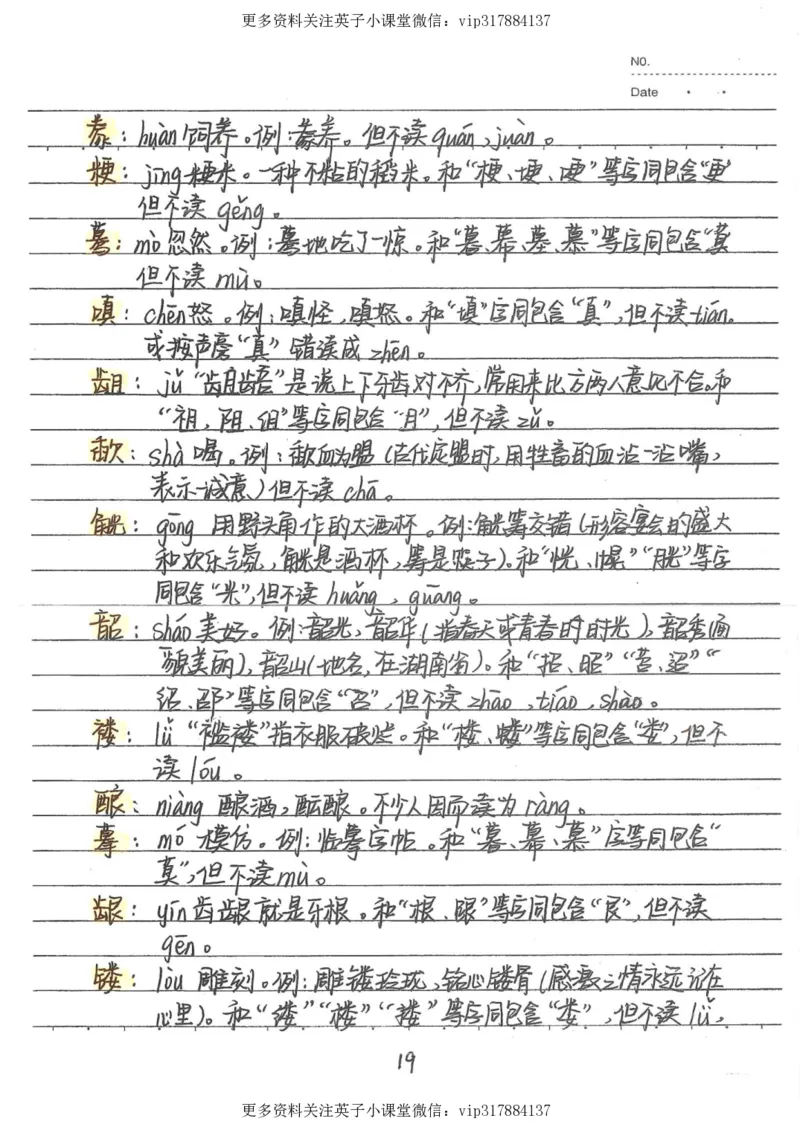 更多资料关注英子小课堂微信：vip317884137
NO.
Date
豢：huàn饲养。例：豢养。但不读quán，juàn。
粳：jīng粳米。一种不粘的稻米。和“梗、埂、哽”等字同包含“更”
但不读gěng。
蓦：mò忽然。例：蓦地吃了一惊。和“暮、幕、墓、慕”等字同包含“莫
但不读mù。
嗔：chēn怒。例：嗔怪，嗔怒。和“填”字同包含“真”，但不读tián。
或按声旁“真”错读成zhēn。
龃：jǔ“龃龉”是说上下牙齿对不齐，常用来比方两人意见不合。和
“祖，阻、组”等字同包含“且”，但不读zǔ。
歃：shà喝。例：歃血为盟（古代定盟时，用牲畜的血沾一沾嘴，
表示诚意）但不读chā。
觥：gōng用野头角作的大酒杯。例：觥筹交错（形容宴会的盛大
和欢乐气氛，觥是酒杯，筹是筷子）。和“恍、幌”“胱”等字
同包含“光”，但不读huǎng，guāng。
韶：sháo美好。例：韶光，韶华（指春天或青春时时光），韶秀（面
貌美丽），韶山（地名，在湖南省）。和“招、昭”“苕、迢”“
绍、邵”等字同包含“召”，但不读zhāo，tiáo，shào。
褛：lǚ“褴褛”指衣服破烂。和“楼、蝼”等字同包含“娄”，但不
读lóu。
酿：niàng酿酒，酝酿。不少人因而读为ràng。
摹：mó模仿。例：临摹字帖。和“暮、幕、慕”字等同包含“
莫”，但不读mù。
龈：yín齿龈就是牙根。和“根、跟”等字同包含“艮”，但不读
gēn。
镂：lòu雕刻。例：雕镂玲珑，铭心镂骨（感激之情永远记在
心里）。和“缕”“楼”“搂”等字同包含“娄”，但不读lǚ，
19
更多资料关注英子小课堂微信：vip317884137